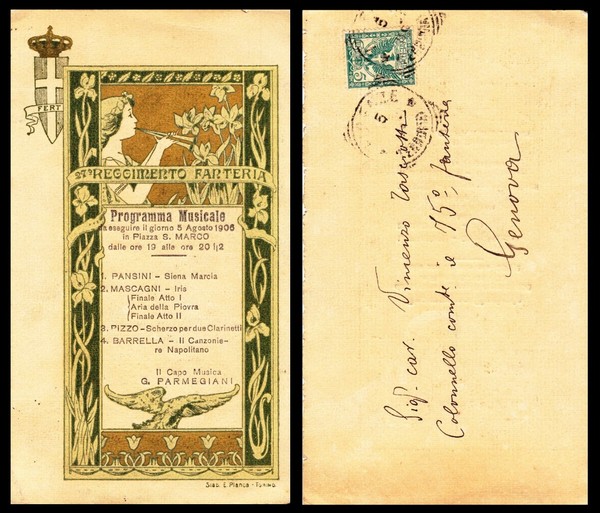 FERT
27º REGGIMENTO FANTERIA
Programma Musicale
da eseguire il giorno 5 Agosto 1906
in Piazza S. MARCO
dalle ore 19 alle ore 20 1|2
1. PANSINI - Siena Marcia
2. MASCAGNI - Iris
Finale Atto I
Aria della Piovra
Finale Atto II
3. PIZZO - Scherzo per due Clarinetti
4. BARRELLA - Il Canzonie-
re Napolitano
Il Capo Musica
G. PARMEGIANI
Stab. E. Planca - TORINO
5
Sigr. cav. Vincenzo
Colonnello comte il 75º fanteria
Genova